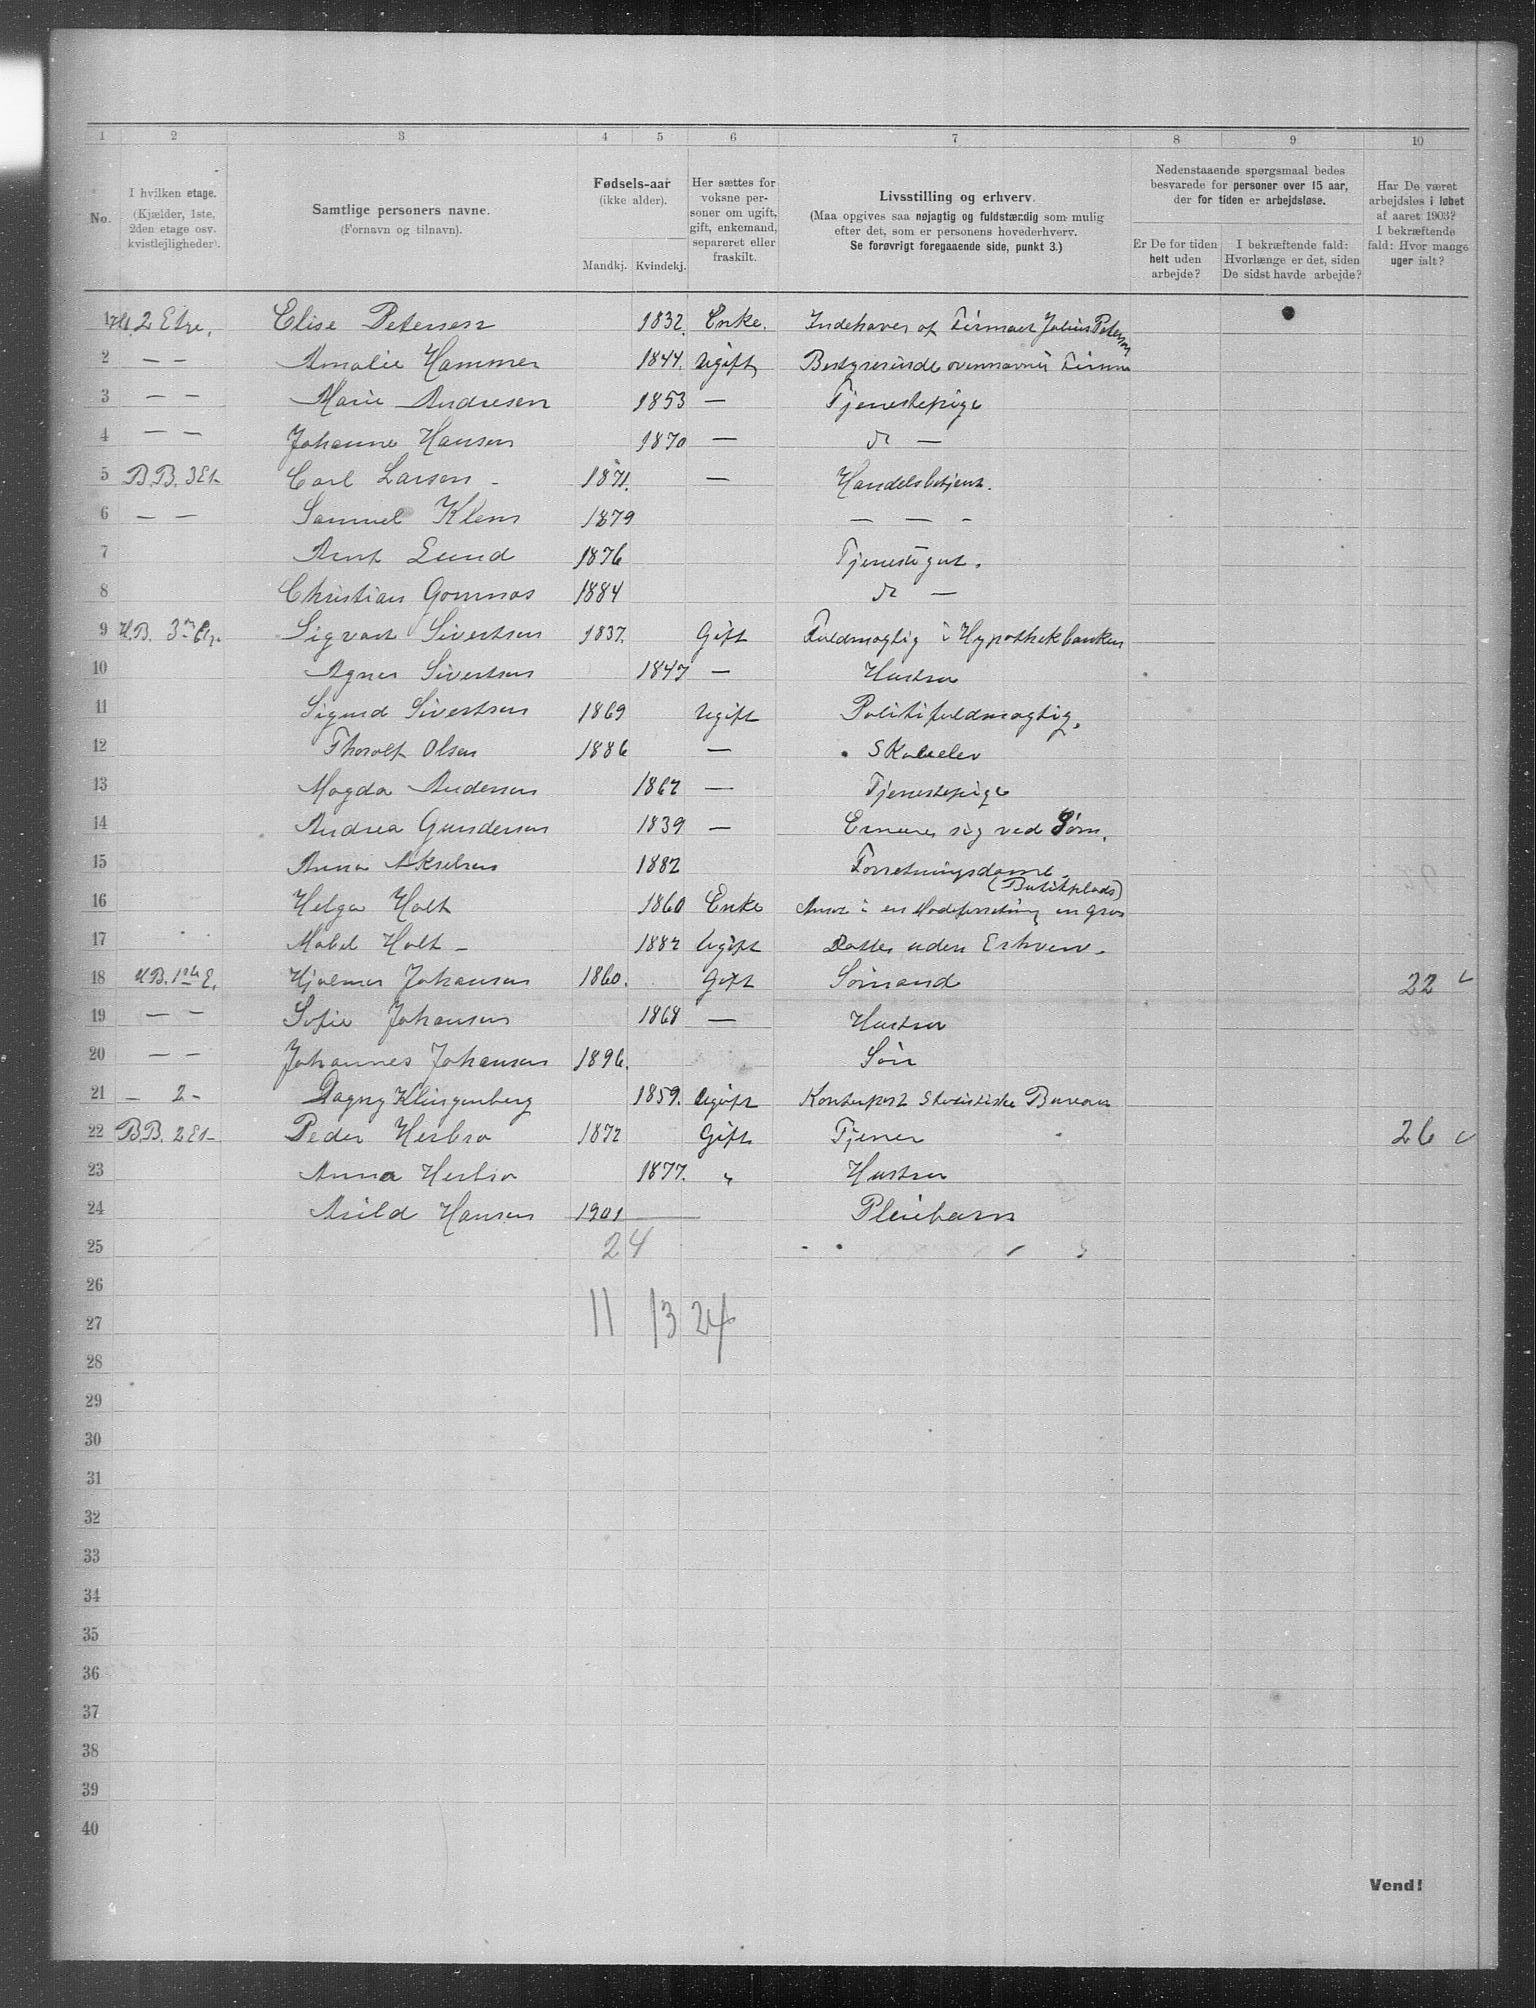 1 2 3 4 5 6 7 8 9 10
No.
I hvilken etage.
(Kjælder, 1ste,
2den etage osv.
kvistlejligheder).
Samtlige personers navne.
(Fornavn og tilnavn).
Fødsels-aar
(ikke alder).
Mandkj. Kvindekj.
Her sættes for
voksne per-
soner om ugift,
gift, enkemand,
separeret eller
fraskilt.
Livsstilling og erhverv.
(Maa opgives saa nøjagtig og fuldstændig som mulig
efter det, som er personens hovederhverv.
Se forøvrigt foregaaende side, punkt 3.)
Nedenstaaende spørgsmaal bedes
besvarede for personer over 15 aar,
der for tiden er arbejdsløse.
Er De for tiden
helt uden
arbejde?
I bekræftende fald:
Hvorlænge er det, siden
De sidst havde arbejde?
Har De været
arbejdsløs i løbet
af aaret 1903?
I bekræftende
fald: Hvor mange
uger ialt?
1 2 Etg. Elise Petersen 1832. Enke. Indehaver af Firmaet Julius Petersen
2 — — Amalie Hammer 1844. Ugift Bestyrerinde ovennævnte Firma
3 — — Marie Andresen 1853 — Tjenestepige
4 — — Johanne Hansen 1870 — do —
5 B.B. 3 Et- Carl Larsen - 1871. — Handelsbetjent.
6 — — Samuel Klem 1879 — — -
7 Arnt Lund 1876 Tjenestegut.
8 Christian Gomnæs 1884 do —
9 H.B. 3 Etg. Sigvart Sivertsen 1837. Gift Fuldmægtig i Hypothekbanken
10 Agnes Sivertsen 1847 — Hustru
11 Sigurd Sivertsen 1869 Ugift Politifuldmægtig.
12 Thorolf Olsen 1886 — Skoleelev
13 Magda Andersen 1862 — Tjenestepige
14 Andrea Gundersen 1839 — Ernærer sig ved Søm.
15 Anna Akselsen 1882 Forretningsdame
(Butikplads)
16 Helga Holt 1860 Enke Ansat i en Modeforretning en gros
17 Mabel Holt - 1882 Ugift Datter uden Erhverv.
18 H.B. 1ste E. Hjalmar Johansen 1860. Gift Sømand 22
19 — — Sofie Johansen 1868 — Hustru
20 — — Johannes Johansen 1896. Søn
21 — 2 - Dagny Klingenberg 1859. Ugift Kontorpost Statistiske Bureau
22 B.B. 2 Et- Peder Herbro 1872 Gift Tjener 26
23 Anna Herbro 1877. " Hustru
24 Arild Hansen 1901 Pleiebarn
25 24
26
27 11 13 24
28
29
30
31
32
33
34
35
36
37
38
39
40
Vend!